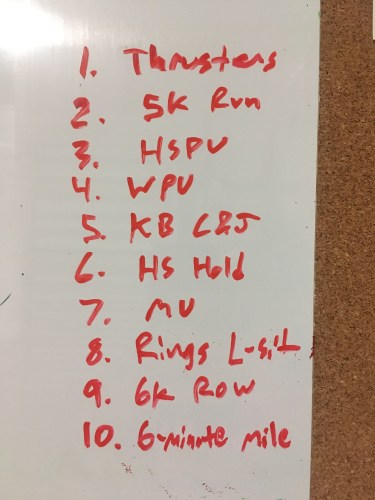 1. Thrusters
2. 5K Run
3. HSPU
4. WPU
5. KB C&J
6. HS Hold
7. MU
8. Rings L-sit
9. 6k Row
10. 6-minute mile